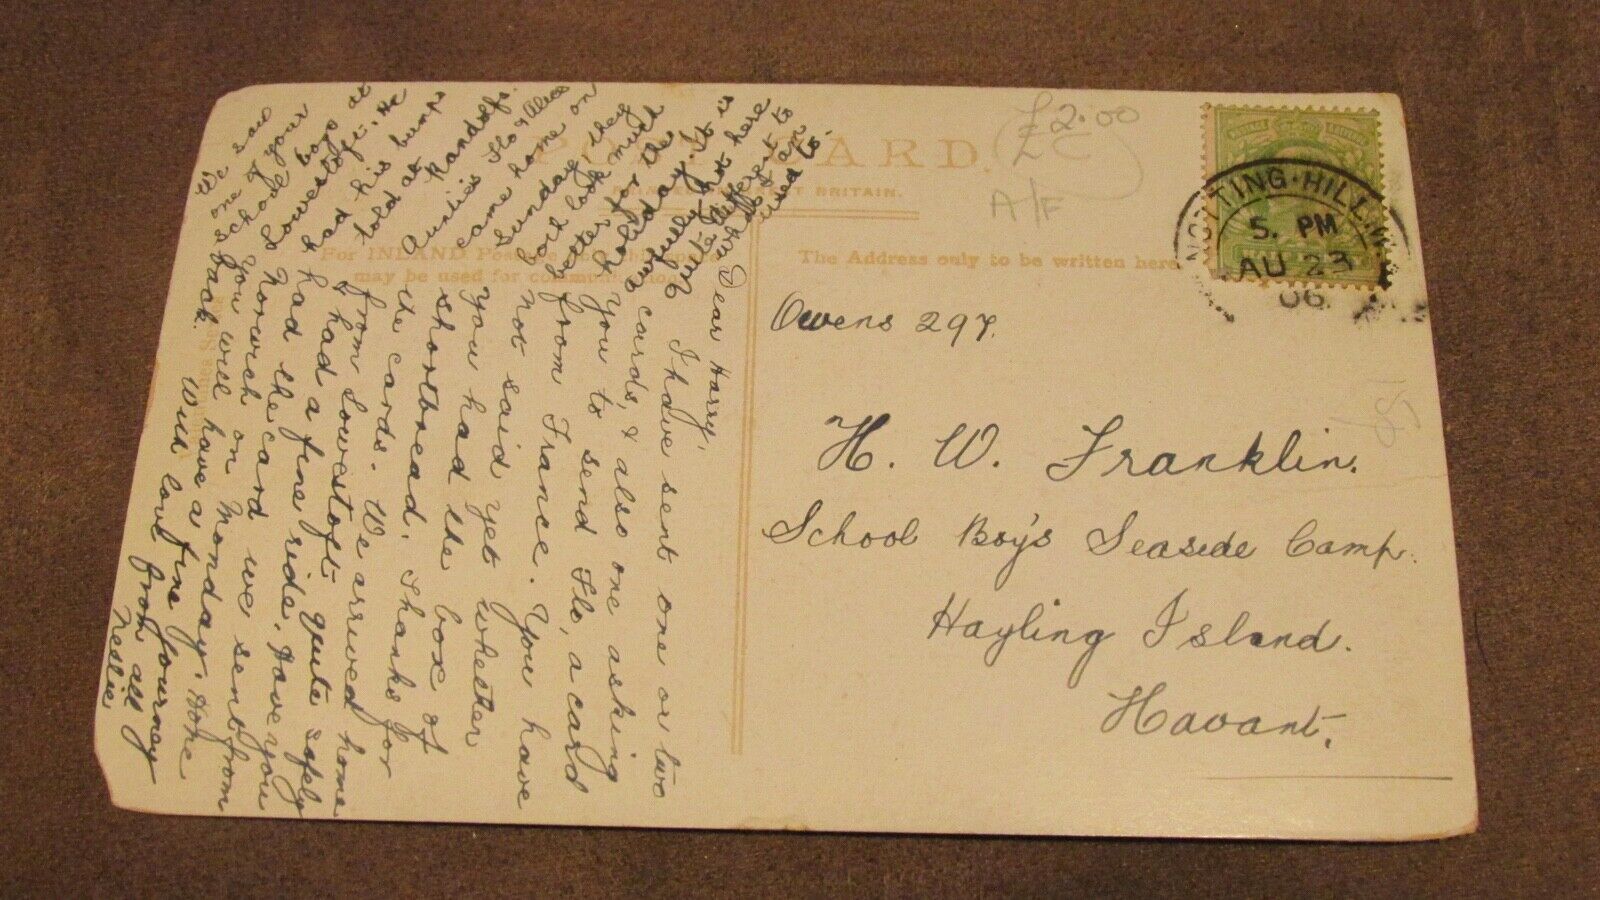 POST CARD.
BRITAIN.
For INLAND
may be used for
The Address only to be written here
£2.00
A/F
NOTTING·HILL
5. PM
AU 23
06
Owens 297.
H. W. Franklin.
School Boy's Seaside Camp.
Hayling Island.
Havant.
Dear Harry,
I have sent one or two
cards, & also one asking
you to send Flo, a card
from France. You have
not said yet whether
you had the box of
shortbread. Thanks for
the cards. We arrived home
from Lowestoft quite safely
& had a fine ride. Have you
had the card we sent from
Norwich on Monday. Hope
you will have a fine journey
back. With love from all
Neslie
We saw
one of your
school boys at
Lowestoft. He
had his bumps
told at
Randolfs.
Auntie's Flo & Alice
came home on
Sunday, they
both look much
better for the
holiday. It is
awfully hot here
quite different to
what I am
used to.